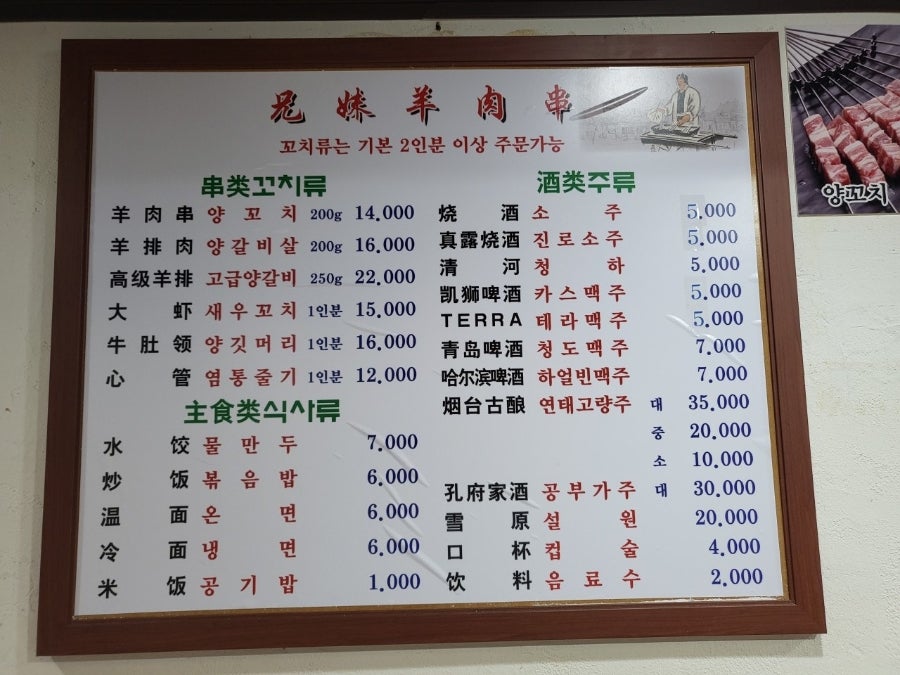 兄妹羊肉串
꼬치류는 기본 2인분 이상 주문가능
串类꼬치류
羊肉串 양꼬치 200g 14.000
羊排肉 양갈비살 200g 16.000
高级羊排 고급양갈비 250g 22.000
大虾 새우꼬치 1인분 15.000
牛肚领 양깃머리 1인분 16.000
心管 염통줄기 1인분 12.000
主食类식사류
水饺 물만두 7.000
炒饭 볶음밥 6.000
温面 온면 6.000
冷面 냉면 6.000
米饭 공기밥 1.000
酒类주류
烧酒 소주 5.000
真露烧酒 진로소주 5.000
清河 청하 5.000
凯狮啤酒 카스맥주 5.000
TERRA 테라맥주 5.000
青岛啤酒 청도맥주 7.000
哈尔滨啤酒 하얼빈맥주 7.000
烟台古酿 연태고량주 대 35.000
중 20.000
소 10.000
孔府家酒 공부가주 대 30.000
雪原 설원 20.000
口杯 컵술 4.000
饮料 음료수 2.000
양꼬치